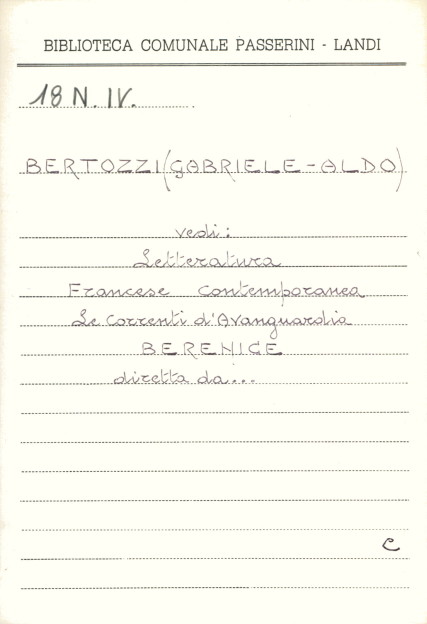 BIBLIOTECA COMUNALE PASSERINI - LANDI
18 N. IV.
BERTOZZI (GABRIELE-ALDO)
vedi:
Letteratura
Francese contemporanea
Le Correnti d'Avanguardia
BERENICE
diretta da...
C